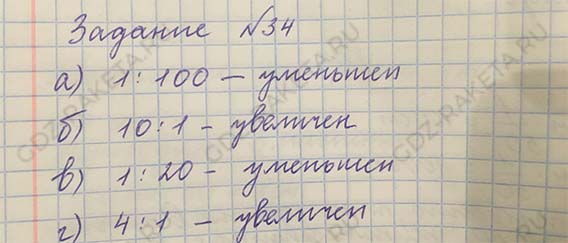 Задание №34
а) 1 : 100 – уменьшен
б) 10 : 1 – увеличен
в) 1 : 20 – уменьшен
г) 4 : 1 – увеличен
GDZ-RAKETA.RU
GDZ-RAKETA.RU